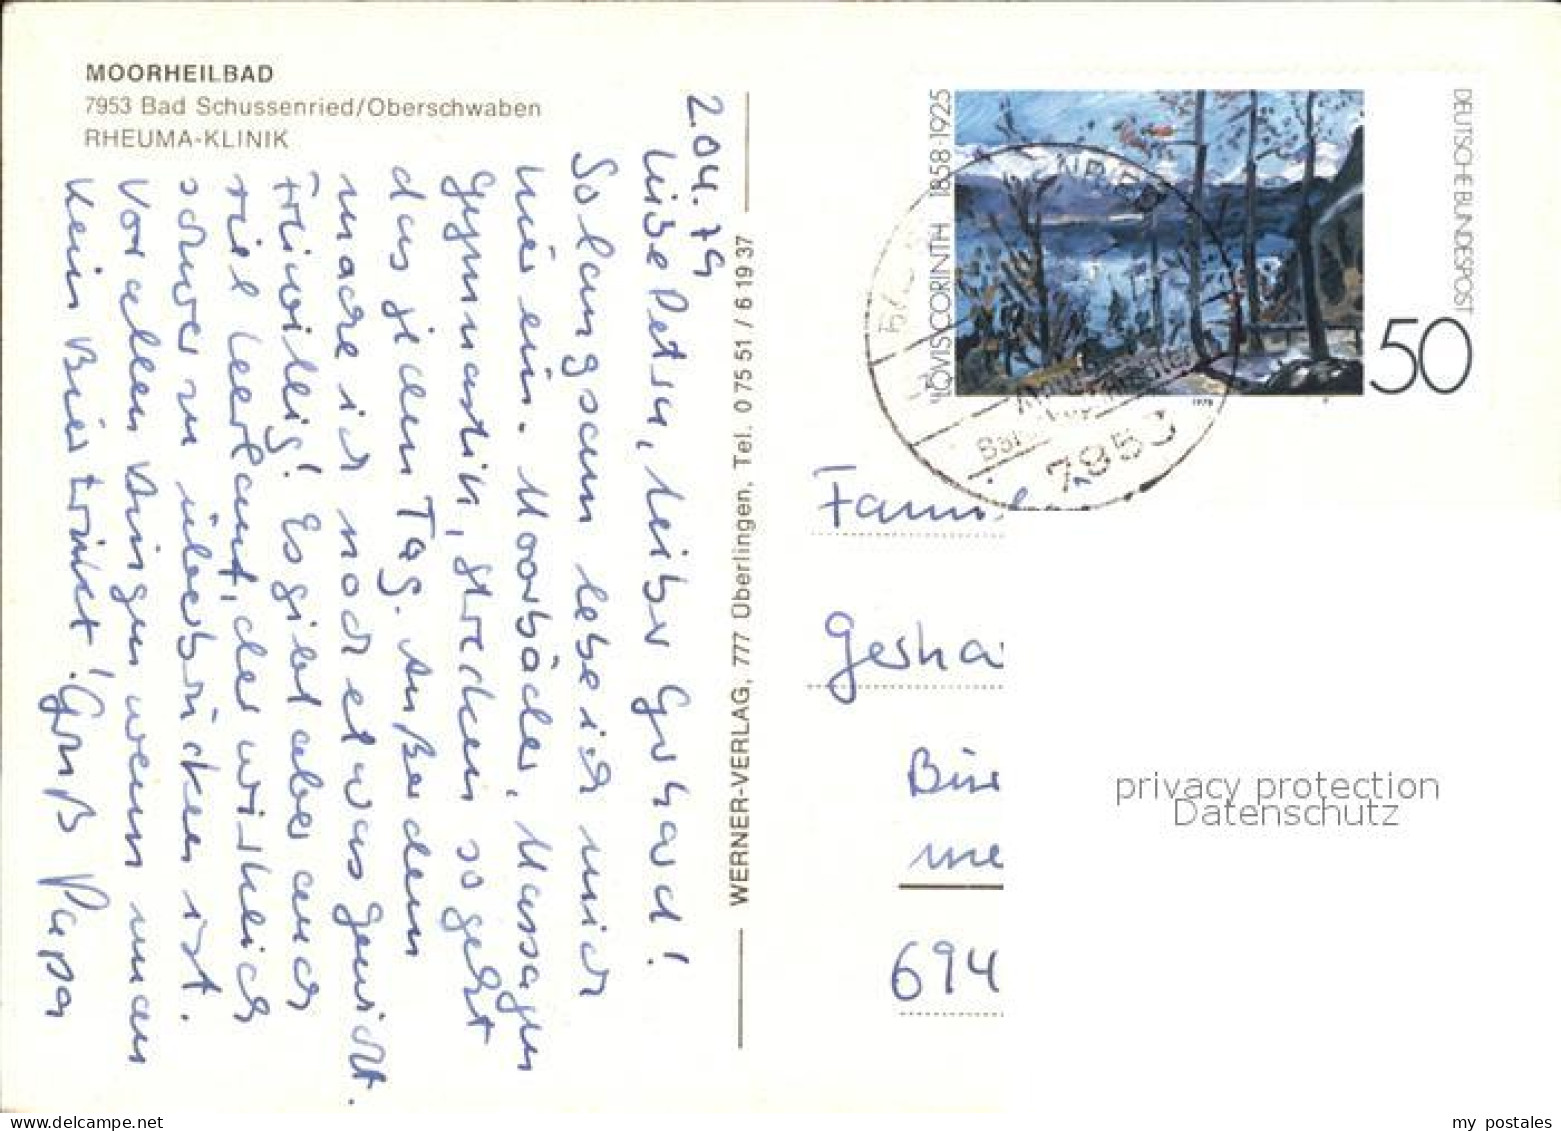 MOORHEILBAD
7953 Bad Schussenried/Oberschwaben
RHEUMA-KLINIK
2.04.79
Liebe Petra, lieber Gerhard!
Solangsam lebe ich mich
hier ein. Moorbäder, Massagen
Gymnastik, strecken so geht
das jeden Tag. Außerdem
mache ich noch etwas Gewicht.
Freiwillig! Es gibt aber auch
viel Leerlauf, der wirklich
schwer zu überbrücken ist.
Vor allen Dingen wenn man
kein Bier trinkt! Gruß Papa
WERNER-VERLAG, 777 Überlingen, Tel. 0 75 51 / 6 19 37
LOVIS CORINTH 1858-1925
DEUTSCHE BUNDESPOST
50
1978
7953
Famil
Gerha
Bir
me
694
privacy protection
Datenschutz
my postales